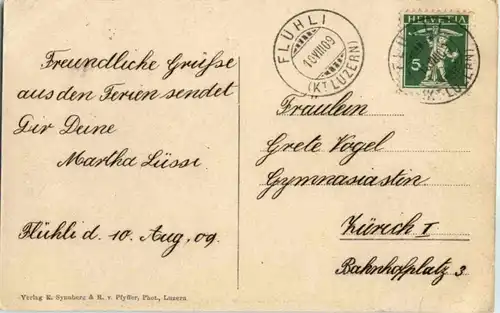 Freundliche Grüsse
aus den Ferien sendet
Dir Deine
Martha Lüssi
Flühli d. 10. Aug. 09.
Verlag E. Synnberg & R. v. Pfyffer, Phot., Luzern.
FLÜHLI
10.VIII.09
(KT LUZERN)
HELVETIA
5
Fräulein
Grete Vogel
Gymnasiastin
Zürich I
Bahnhofplatz 3